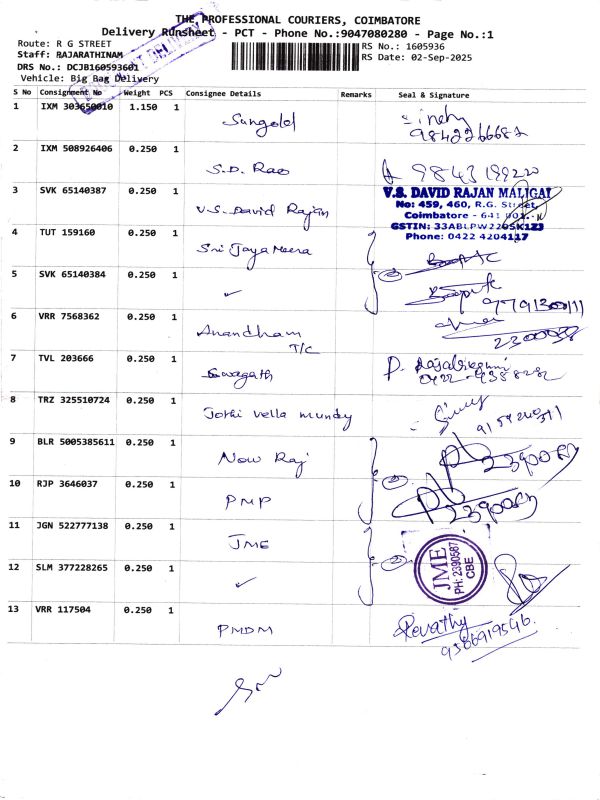 THE PROFESSIONAL COURIERS, COIMBATORE
Delivery Runsheet - PCT - Phone No.:9047080280 - Page No.:1
Route: R G STREET
RS No.: 1605936
Staff: RAJARATHINAM
RS Date: 02-Sep-2025
DRS No.: DCJB160593601
Vehicle: Big Bag Delivery
S No Consignment No Weight PCS Consignee Details Remarks Seal & Signature
1 IXM 303650010 1.150 1 Sungold
2 IXM 508926406 0.250 1 S.D. Rao
3 SVK 65140387 0.250 1 V.S. David Rajan
V.S. DAVID RAJAN MALIGAI
No: 459, 460, R.G. Street,
Coimbatore - 641 001.
GSTIN: 33ABLPW2205K1Z3
Phone: 0422 4204117
4 TUT 159160 0.250 1 Sri Jaya Meera
5 SVK 65140384 0.250 1 ✓
6 VRR 7568362 0.250 1 Anandham T/C
7 TVL 203666 0.250 1 Swagath
8 TRZ 325510724 0.250 1 Jothi vella mundy
9 BLR 5005385611 0.250 1 Now Raj
10 RJP 3646037 0.250 1 PMP
11 JGN 522777138 0.250 1 JME
JME
PH: 2390587
CBE
12 SLM 377228265 0.250 1 ✓
13 VRR 117504 0.250 1 PMDM Revathy
9386919546.